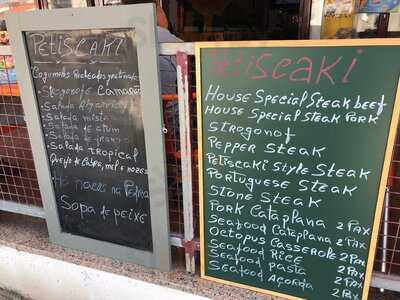 Petiscaki
Cogumelos Recheados gratinados
Stroganoff Camarão
Salada Algarvia
Salada mista
Salada de atum
Salada de frango
Salada Tropical
Queijo de Cabra, mel e nozes
na Pedra
Sopa de peixe
Petiscaki
House Special Steak beef
House Special Steak Pork
Stroganof
Pepper Steak
Petiscaki Style Steak
Portuguese Steak
Stone Steak
Pork Cataplana 2 Pax
Seafood Cataplana 2 Pax
Octopus Casserole 2 Pax
Seafood Rice 2 Pax
Seafood Pasta 2 Pax
Seafood Açorda 2 Pax